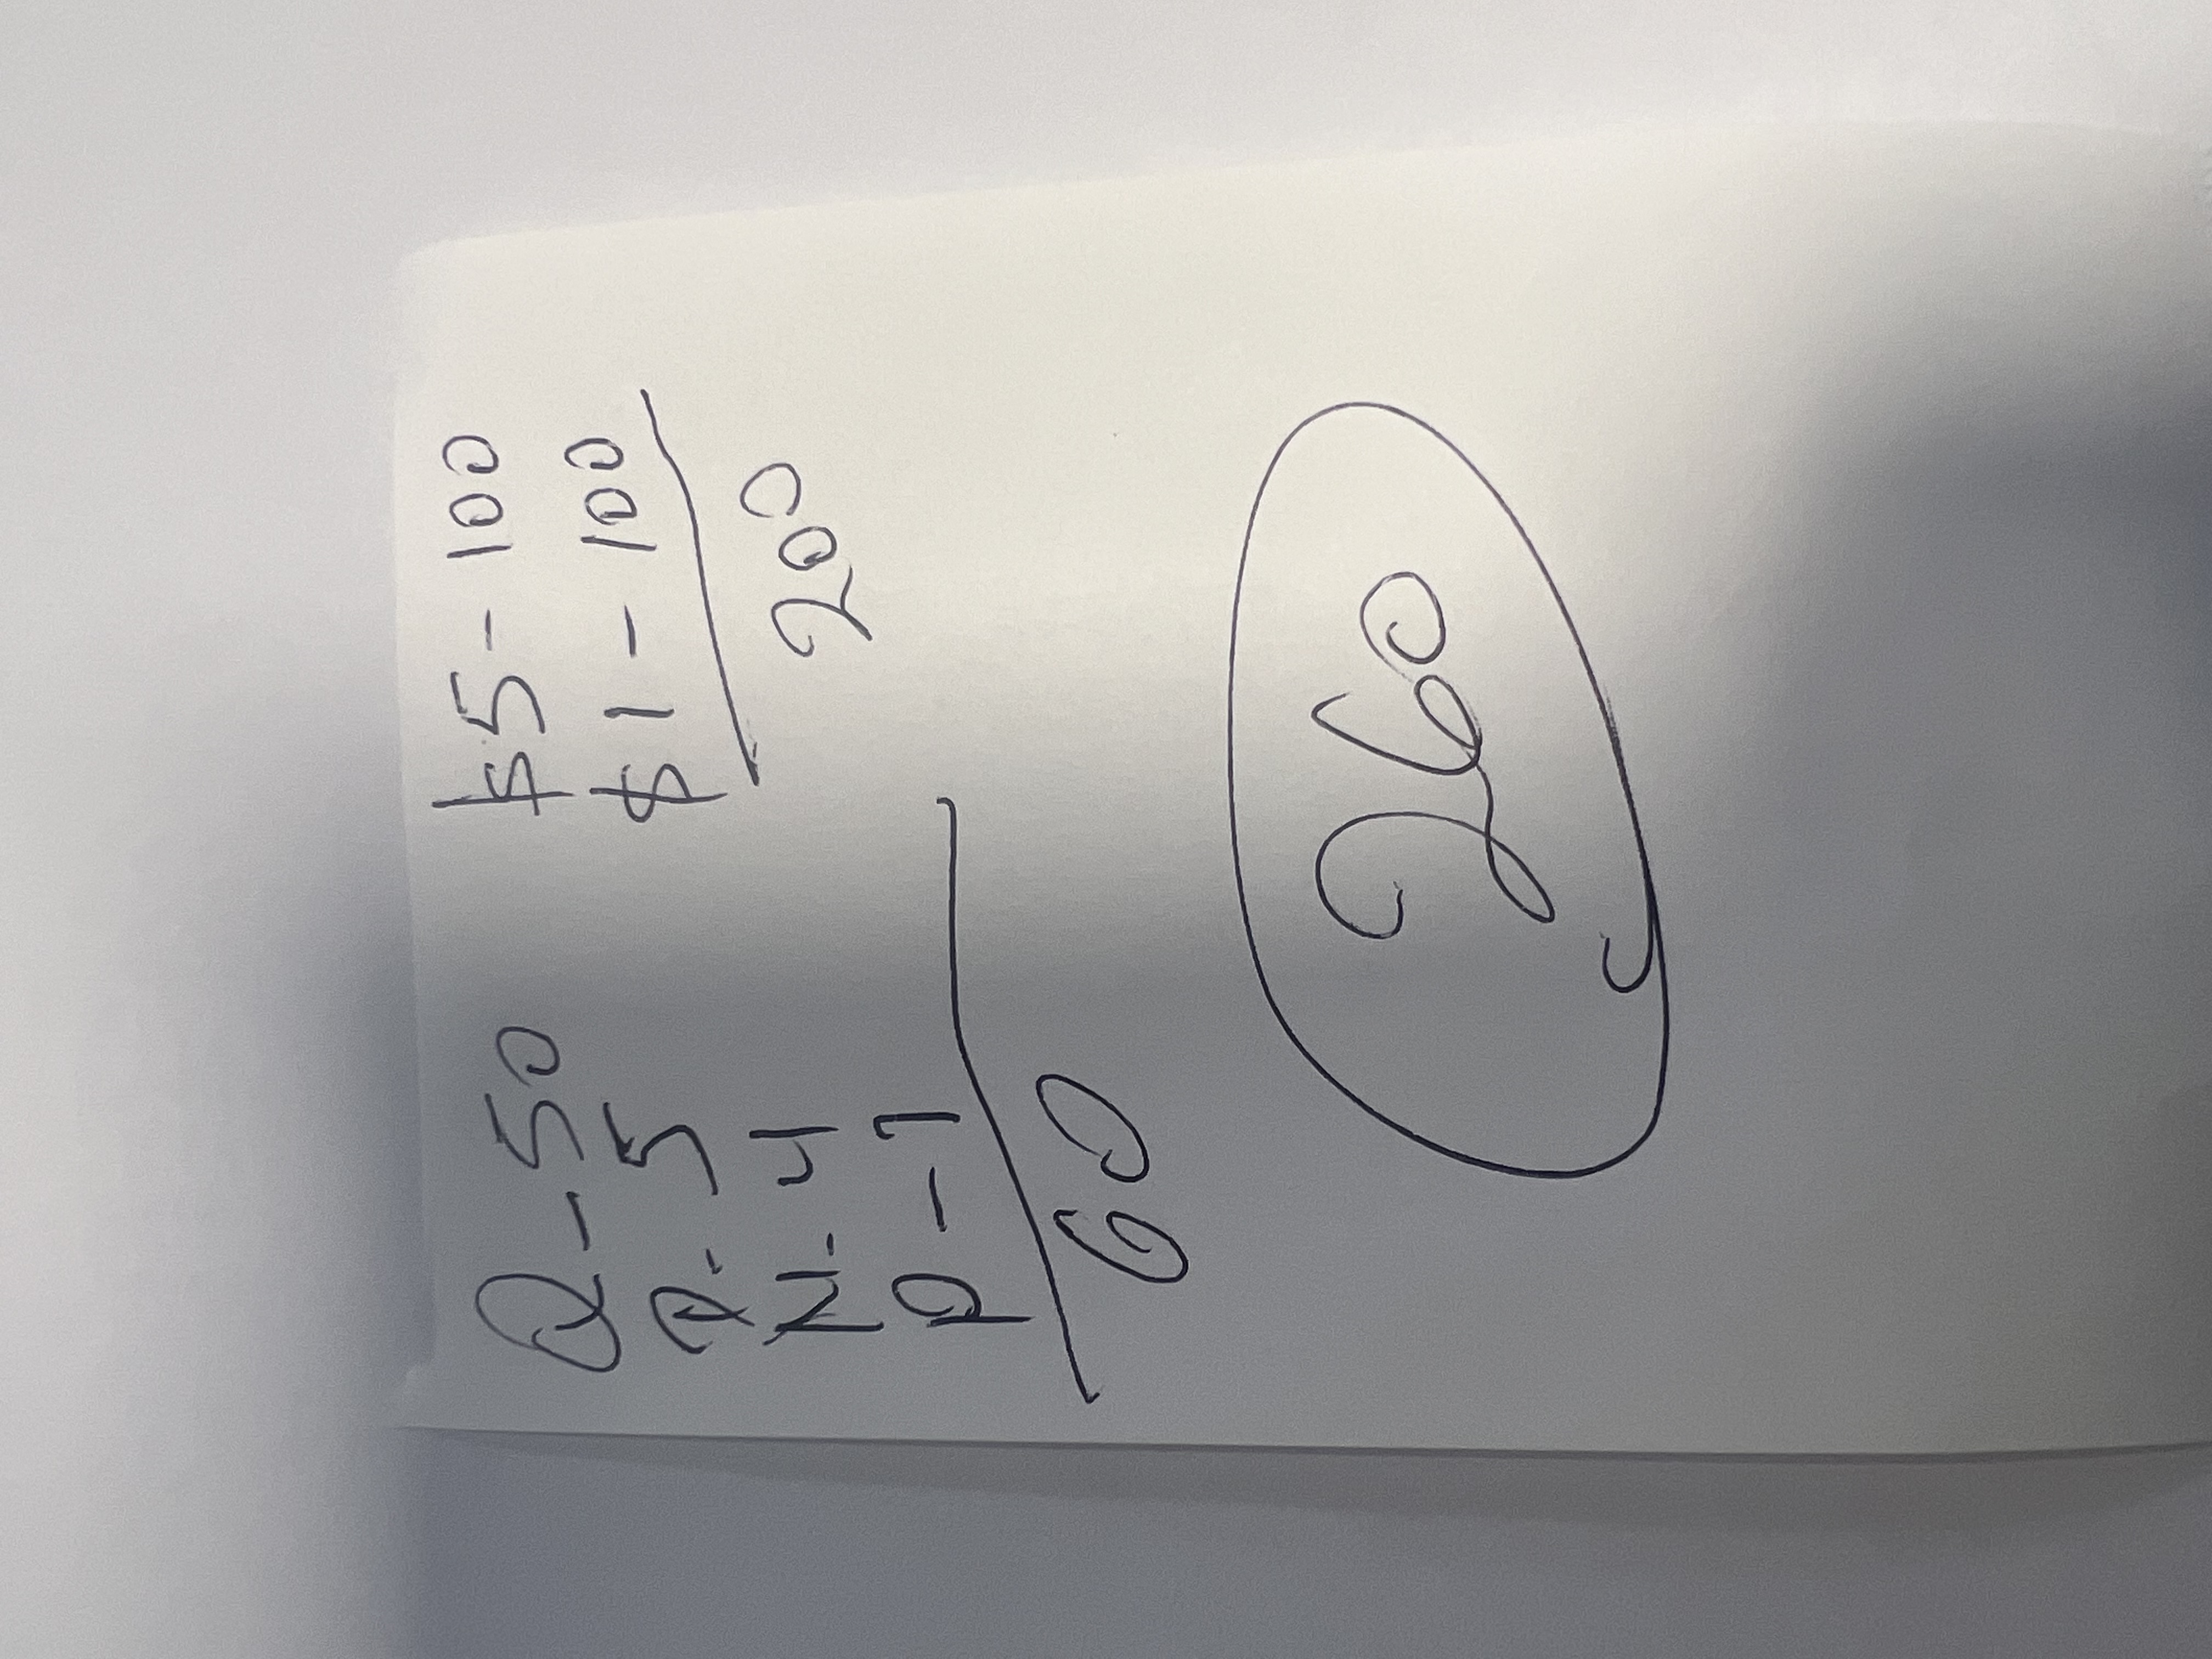 Q - 50
D - 5
N - 4
P - 1
60
$5 - 100
$1 - 100
200
260